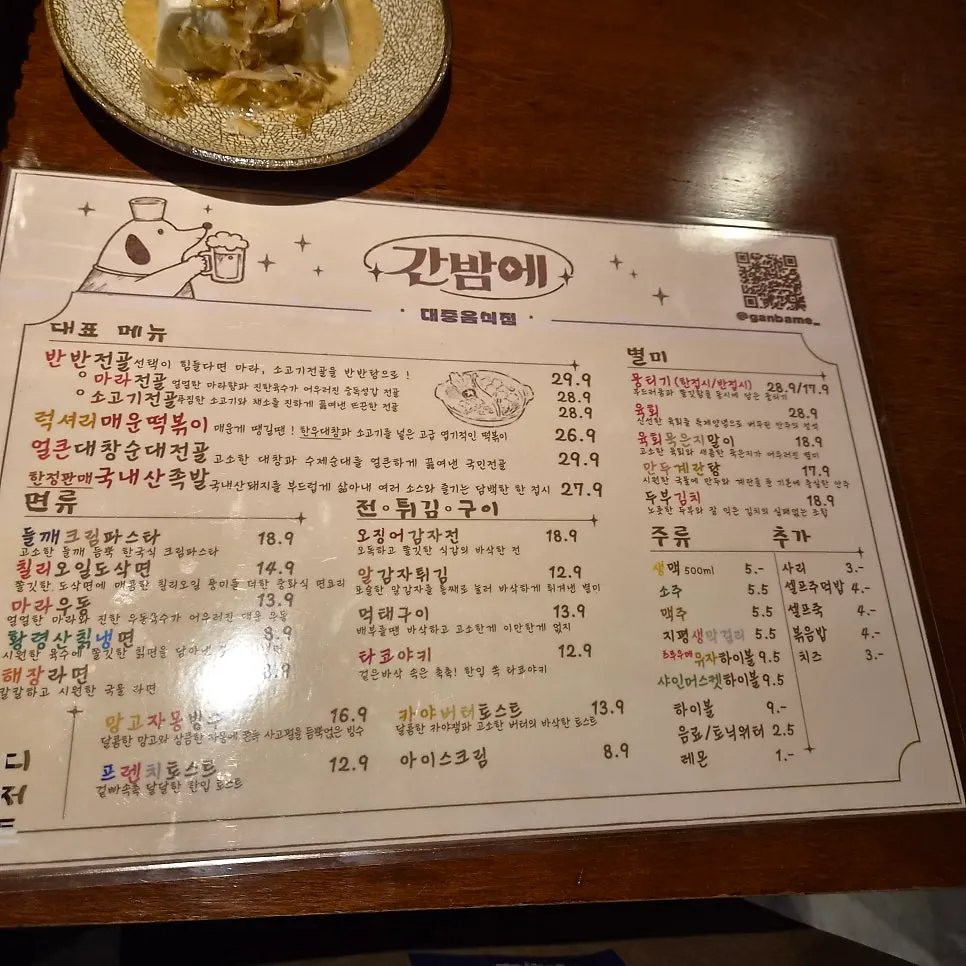 간밤에
대중음식점
@ganbame_
대표 메뉴
반반전골 선택이 힘들다면 마라, 소고기전골을 반반탕으로! 29.9
마라전골 얼얼한 마라향과 진한육수가 어우러진 중독성갑 전골 28.9
소고기전골 푸짐한 소고기와 채소를 진하게 끓여낸 뜨끈한 전골 28.9
럭셔리 매운떡볶이 매운게 땡길땐! 한우대창과 소고기를 넣은 고급 엽기적인 떡볶이 26.9
얼큰대창순대전골 고소한 대창과 수제순대를 얼큰하게 끓여낸 국민전골 29.9
한정판매 국내산족발 국내산돼지를 부드럽게 삶아내 여러 소스와 즐기는 담백한 한 접시 27.9
면류
들깨크림파스타 18.9
고소한 들깨 듬뿍 한국식 크림파스타
칠리오일도삭면 14.9
쫄깃한 도삭면에 매콤한 칠리오일 풍미를 더한 중화식 면요리
마라우동 13.9
얼얼한 마라와 진한 우동육수가 어우러진 매운 우동
황령산칡냉면 8.9
시원한 육수에 쫄깃한 칡면을 담아낸
해장라면 8.9
칼칼하고 시원한 국물 라면
전·튀김·구이
오징어감자전 18.9
오독하고 쫄깃한 식감의 바삭한 전
알감자튀김 12.9
포슬한 알감자를 통째로 눌러 바삭하게 튀겨낸 별미
먹태구이 13.9
배부를땐 바삭하고 고소한게 이만한게 없지
타코야키 12.9
겉은바삭 속은 촉촉! 한입 쏙 타코야키
별미
뭉터기 (한접시/반접시) 28.9/17.9
부드러움과 쫄깃함을 동시에 담은 뭉터기
육회 28.9
신선한 육회를 특제양념으로 버무린 안주의 정석
육회묵은지말이 18.9
고소한 육회와 새콤한 묵은지가 어우러진 별미
만두계란탕 17.9
시원한 국물에 만두와 계란을 푼 기본에 충실한 안주
두부김치 18.9
노릇한 두부와 잘 익은 김치의 실패없는 조합
주류
생맥 500ml 5.-
소주 5.5
맥주 5.5
지평생막걸리 5.5
유자하이볼 9.5
샤인머스켓하이볼 9.5
하이볼 9.-
음료/토닉워터 2.5
레몬 1.-
추가
사리 3.-
셀프주먹밥 4.-
셀프죽 4.-
볶음밥 4.-
치즈 3.-
디
저
망고자몽빙수 16.9
달콤한 망고와 상큼한 자몽에 쫀득 사고펄을 듬뿍얹은 빙수
프렌치토스트 12.9
겉빠속촉 달달한 한입 토스트
카야버터토스트 13.9
달콤한 카야잼과 고소한 버터의 바삭한 토스트
아이스크림 8.9